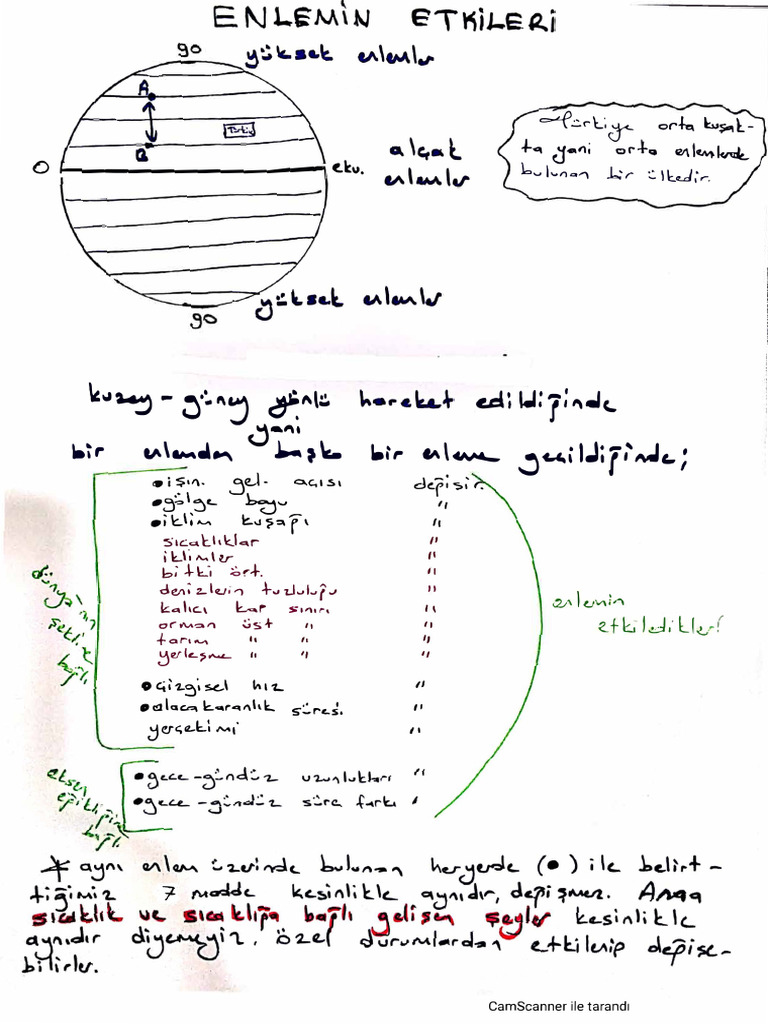 ENLEMİN ETKİLERİ
90
yüksek enlemler
A
B
Türkiye
0
eku.
alçak
enlemler
Türkiye orta kuşak-
ta yani orta enlemlerde
bulunan bir ülkedir.
yüksek enlemler
90
kuzey-güney yönlü hareket edildiğinde
yani
bir enlemden başka bir enleme geçildiğinde;
•ışın. gel. açısı değişir.
•gölge boyu "
•iklim kuşağı "
sıcaklıklar "
iklimler "
bitki ört. "
denizlerin tuzluluğu "
kalıcı kar sınırı "
orman üst " "
tarım " " "
yerleşme " " "
•çizgisel hız "
•alacakaranlık süresi "
yerçekimi "
dünya'nın
şekline
bağlı
enlemin
etkiledikleri
•gece-gündüz uzunlukları "
•gece-gündüz süre farkı "
eksen
eğikliğine
bağlı
* aynı enlem üzerinde bulunan heryerde (•) ile belirt-
tiğimiz 7 madde kesinlikle aynıdır, değişmez. Ama
sıcaklık ve sıcaklığa bağlı gelişen şeyler kesinlikle
aynıdır diyemeyiz, özel durumlardan etkilenip değişe-
bilirler.
CamScanner ile tarandı